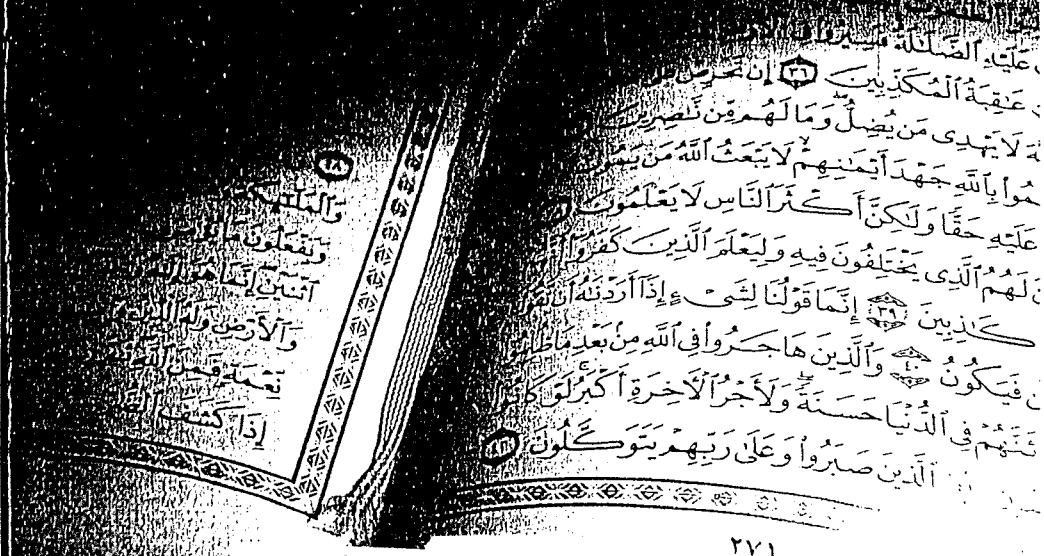 عَلَيْهِ ٱلضَّلَـٰلَةُ فَسِيرُوا۟ فِى
عَـٰقِبَةُ ٱلْمُكَذِّبِينَ ٣٦ إِن تَحْرِصْ
لَا يَهْدِى مَن يُضِلُّ وَمَا لَهُم مِّن نَّـٰصِرِينَ
بِٱللَّهِ جَهْدَ أَيْمَـٰنِهِمْ لَا يَبْعَثُ ٱللَّهُ مَن
عَلَيْهِ حَقًّا وَلَـٰكِنَّ أَكْثَرَ ٱلنَّاسِ لَا يَعْلَمُونَ
لَهُمُ ٱلَّذِى يَخْتَلِفُونَ فِيهِ وَلِيَعْلَمَ ٱلَّذِينَ كَفَرُوٓا۟
كَـٰذِبِينَ ٣٩ إِنَّمَا قَوْلُنَا لِشَىْءٍ إِذَآ أَرَدْنَـٰهُ أَن
فَيَكُونُ ٤٠ وَٱلَّذِينَ هَاجَرُوا۟ فِى ٱللَّهِ مِنۢ بَعْدِ مَا
فِى ٱلدُّنْيَا حَسَنَةً وَلَأَجْرُ ٱلْـَٔاخِرَةِ أَكْبَرُ لَوْ
ٱلَّذِينَ صَبَرُوا۟ وَعَلَىٰ رَبِّهِمْ يَتَوَكَّلُونَ
٢٧١
وَٱلْمَلَـٰٓئِكَةُ
وَيَفْعَلُونَ مَا
ٱثْنَيْنِ إِنَّمَا هُوَ
وَٱلْأَرْضِ وَلَهُ
نِّعْمَةٍ فَمِنَ ٱللَّهِ
إِذَا كَشَفَ